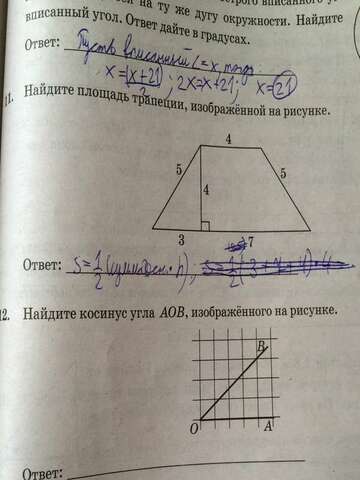 на ту же дугу окружности. Найдите
вписанный угол. Ответ дайте в градусах.
Ответ: Пусть вписанный ∠=x, тогда
x=(x+21)/2; 2x=x+21; x=21
11. Найдите площадь трапеции, изображённой на рисунке.
4
5
5
4
3
7
Ответ: S=1/2(сумма осн·h),
12. Найдите косинус угла AOB, изображённого на рисунке.
B
O
A
Ответ: